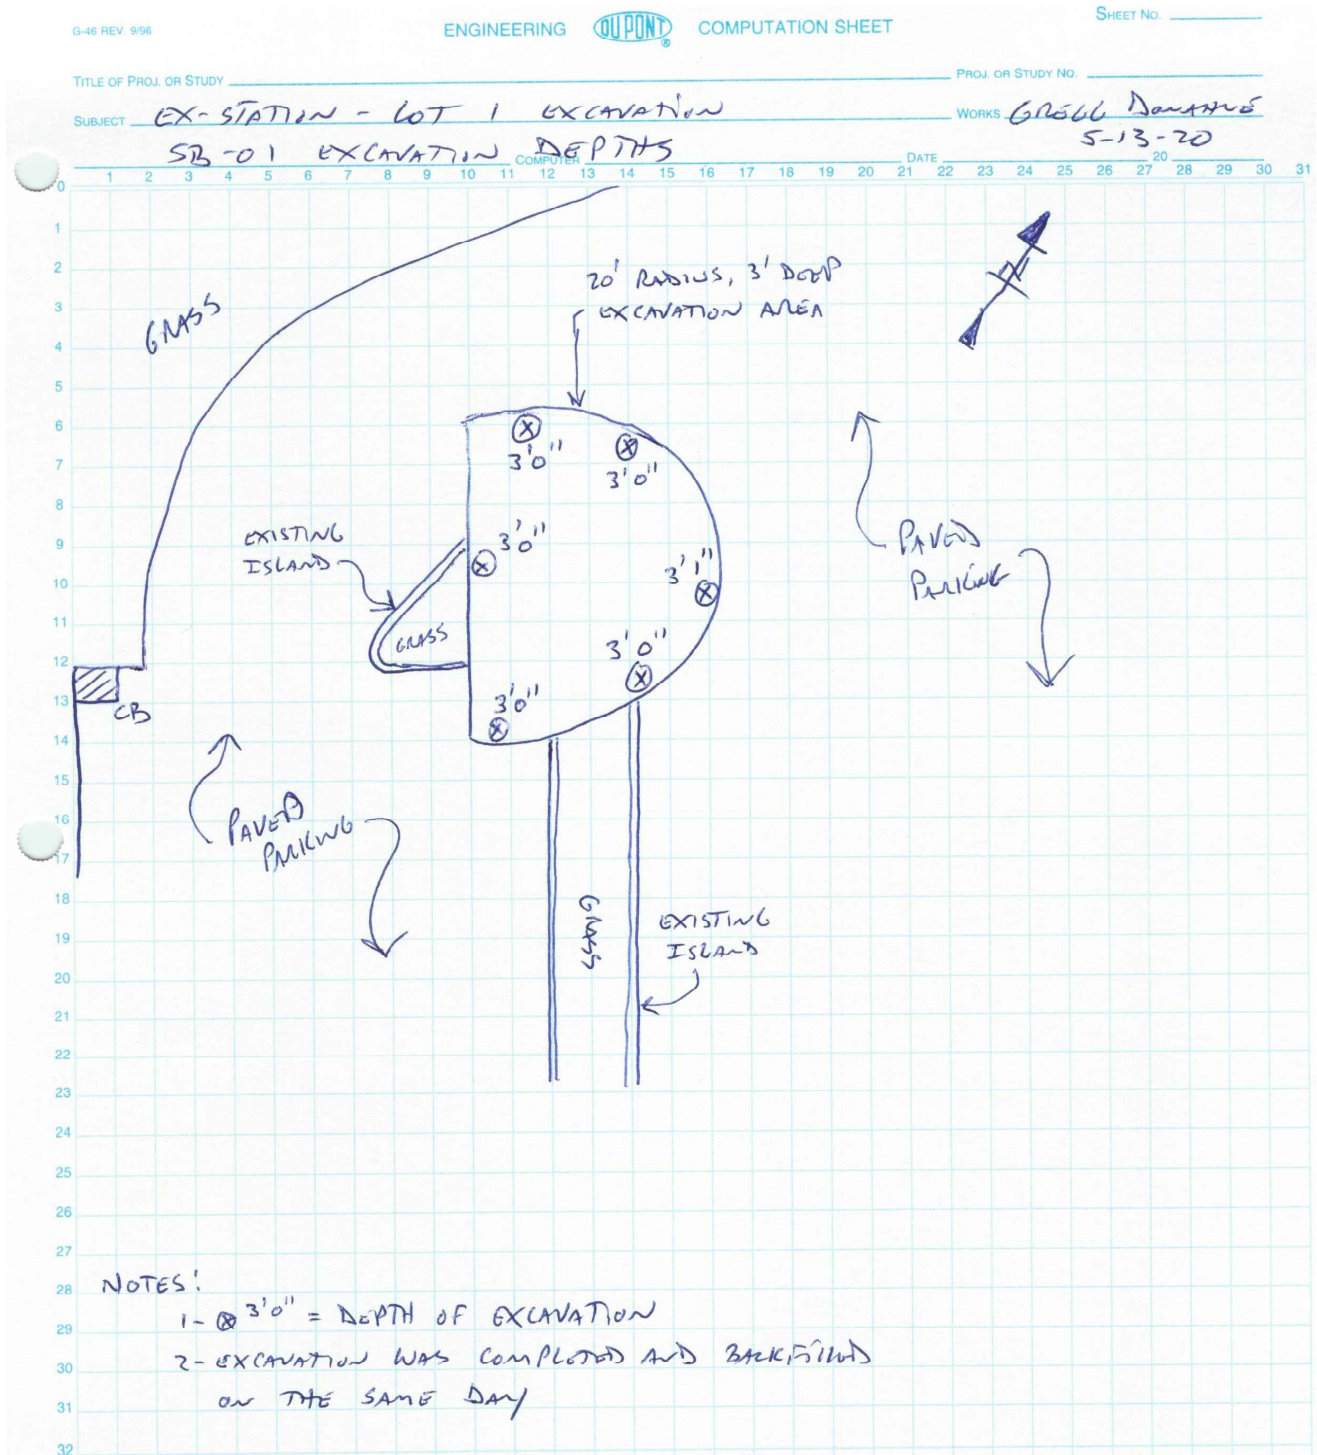 G-46 REV. 9/96
ENGINEERING DU PONT ® COMPUTATION SHEET
SHEET NO.
TITLE OF PROJ. OR STUDY
PROJ. OR STUDY NO.
SUBJECT EX-STATION - LOT 1 EXCAVATION
WORKS GREGG DONAHUE
SB-01 EXCAVATION DEPTHS
5-13-20
COMPUTER
DATE
20
1 2 3 4 5 6 7 8 9 10 11 12 13 14 15 16 17 18 19 20 21 22 23 24 25 26 27 28 29 30 31
0
1
2
3
4
5
6
7
8
9
10
11
12
13
14
15
16
17
18
19
20
21
22
23
24
25
26
27
28
29
30
31
32
N
20' RADIUS, 3' DEEP
EXCAVATION AREA
GRASS
3'0"
3'0"
EXISTING
ISLAND
3'0"
3'1"
PAVED
PARKING
GRASS
3'0"
3'0"
CB
PAVED
PARKING
GRASS
EXISTING
ISLAND
NOTES:
1- ⊗ 3'0" = DEPTH OF EXCAVATION
2- EXCAVATION WAS COMPLETED AND BACKFILLED
ON THE SAME DAY